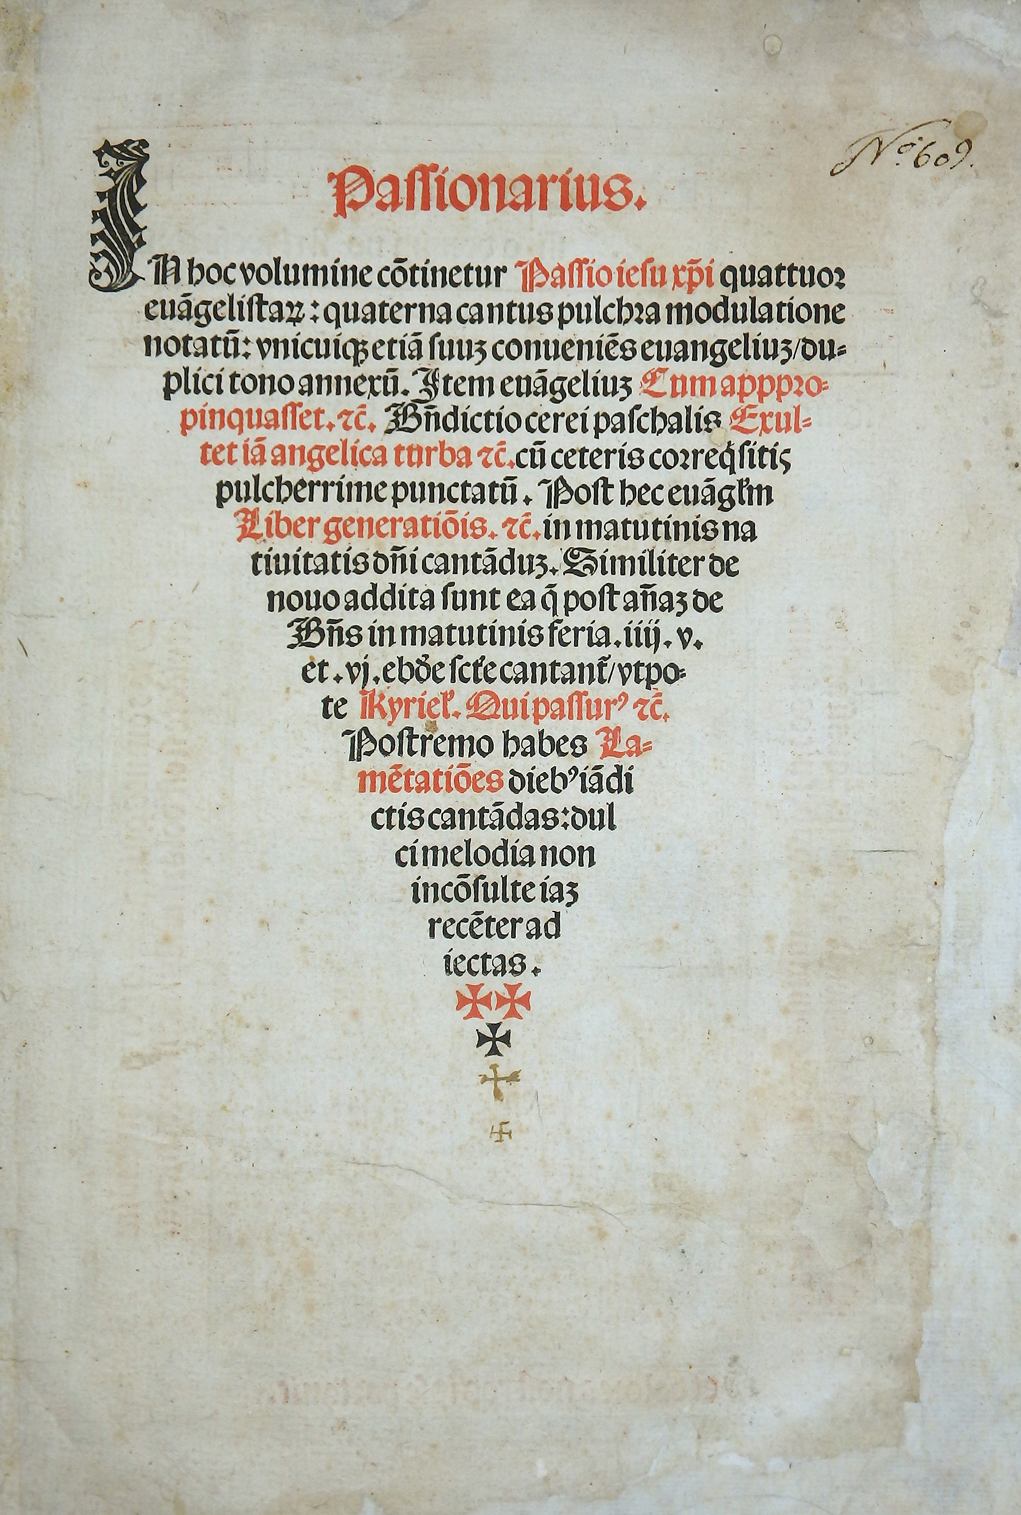 Nº. 609.
Passionarius.
IN hoc volumine cōtinetur Passio iesu xp̄i quattuor
euāgelistaꝝ: quaterna cantus pulchra modulatione
notatū: vnicuiqꝫ etiā suuꝫ conueniēs euangeliuꝫ/du⸗
plici tono annexū. Item euāgeliuꝫ Cum apppro⸗
pinquasset. ⁊c̄. Bn̄dictio cerei paschalis Exul⸗
tet iā angelica turba ⁊c̄. cū ceteris correq̇sitis
pulcherrime punctatū. Post hec euāgłm
Liber generatiōis. ⁊c̄. in matutinis na
tiuitatis dn̄i cantāduꝫ. Similiter de
nouo addita sunt ea q̄ post an̄aꝫ de
Bn̄s in matutinis feria. iiij. v.
et. vj. ebd̄e scte cantant̄/vtpo⸗
te Kyrieł. Qui passurꝰ ⁊c̄.
Postremo habes La⸗
mētatiōes diebꝰ iādi
ctis cantādas: dul
ci melodia non
incōsulte iaꝫ
recēter ad
iectas.